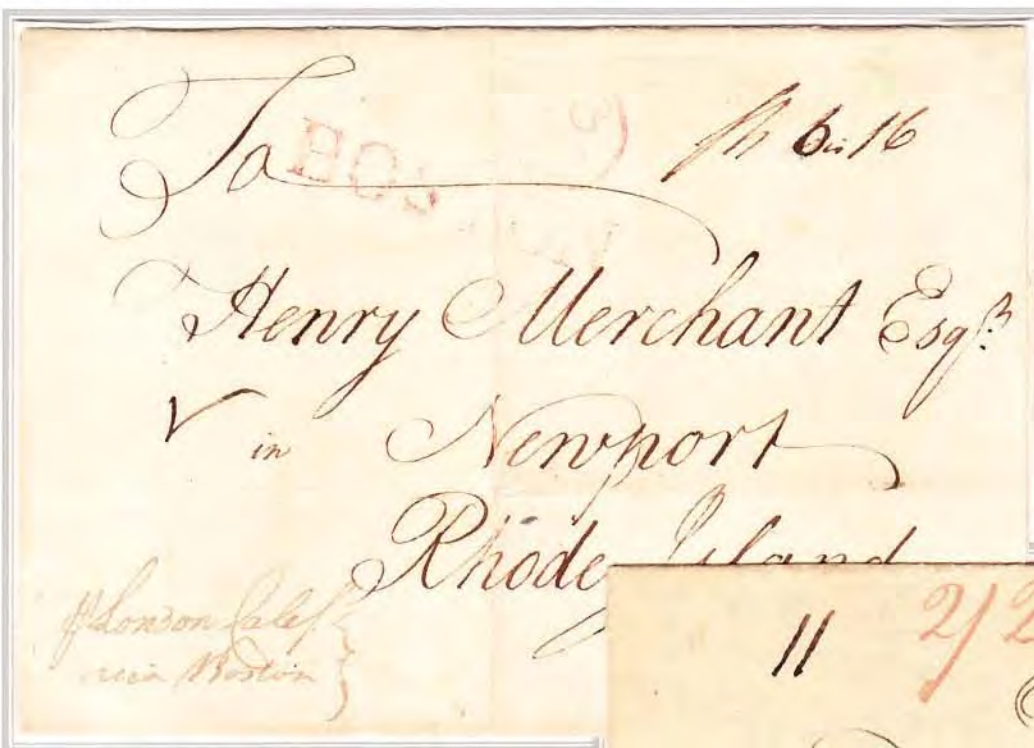 To
BOSTON
6 16
Henry Merchant Esqr.
in Newport
Rhode Island
London Calef
via Boston
11 2/2